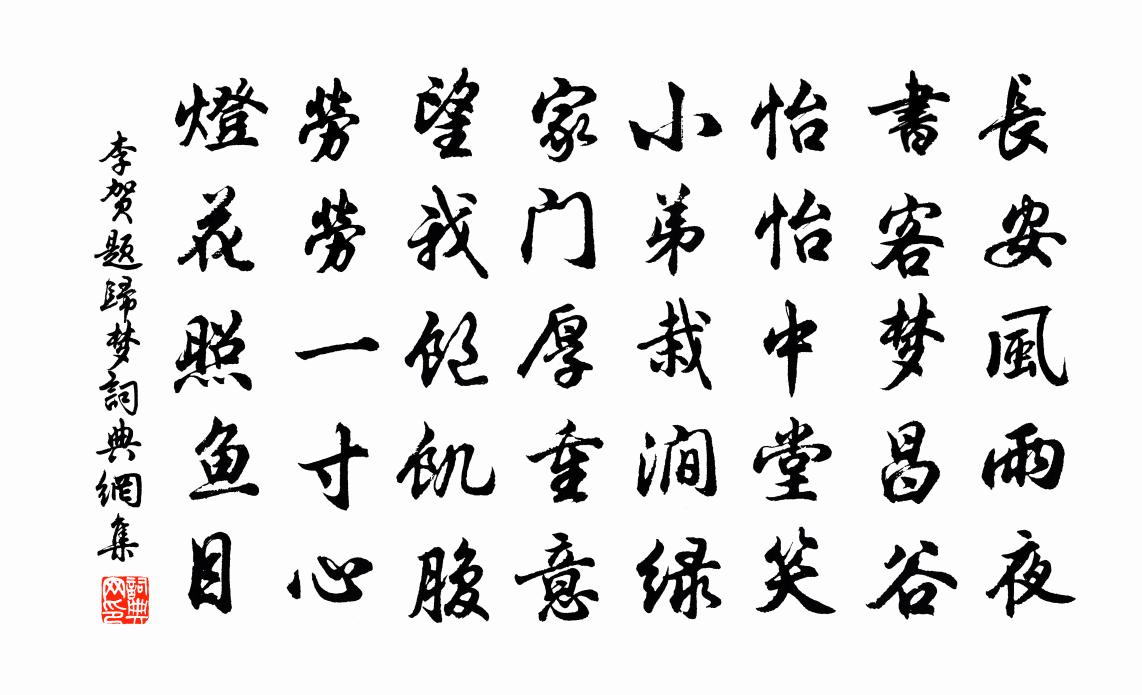 長安風雨夜
書客梦昌谷
怡怡中堂笑
小弟栽澗緑
家门厚重意
望我飽飢腹
勞勞一寸心
燈花照鱼目
李贺题歸梦詞典網集
詞典网印